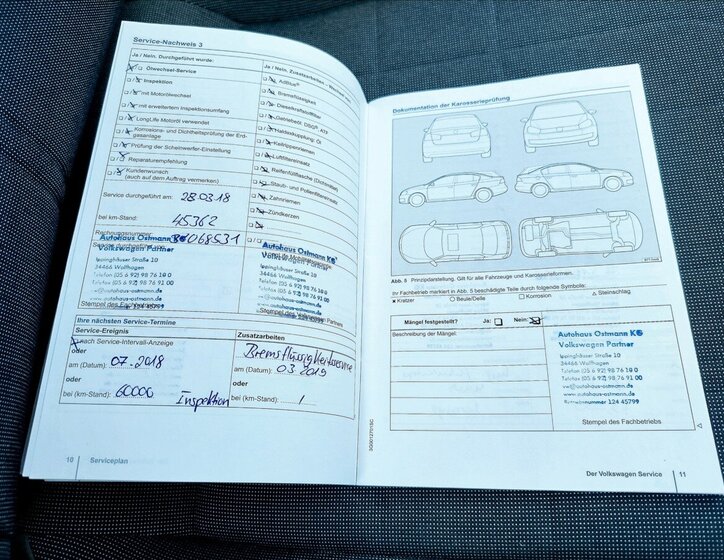 Service-Nachweis 3
Ja / Nein. Durchgeführt wurde:
Ölwechsel-Service
Inspektion
mit Motorölwechsel
mit erweitertem Inspektionsumfang
LongLife Motoröl verwendet
Korrosions- und Dichtheitsprüfung der Erdgasanlage
Prüfung der Scheinwerfer-Einstellung
Reparaturempfehlung
Kundenwunsch
(auch auf dem Auftrag vermerken)
Service durchgeführt am: 28.03.18
bei km-Stand: 45362
Rechnungsnummer: 068531
Autohaus Ostmann KG
Volkswagen Partner
Ippinghäuser Straße 10
34466 Wolfhagen
Telefon (05 6 92) 98 76 10 0
Telefax (05 6 92) 98 76 91 00
vw@autohaus-ostmann.de
www.autohaus-ostmann.de
Stempel des Fachbetriebs
Ja / Nein. Zusatzarbeiten
AdBlue®
Bremsflüssigkeit
Dieselkraftstofffilter
Getriebeöl: DSG®
Haldexkupplung: Öl
Keilrippenriemen
Luftfiltereinsatz
Reifenfüllflasche (Dichtmittel)
Staub- und Pollenfiltereinsatz
Zahnriemen
Zündkerzen
Autohaus Ostmann KG
Volkswagen Partner
Ippinghäuser Straße 10
34466 Wolfhagen
Ihre nächsten Service-Termine
Service-Ereignis
Zusatzarbeiten
nach Service-Intervall-Anzeige
oder
am (Datum): 07.2018
oder
bei (km-Stand): 60000
Inspektion
Bremsflüssigkeitsservice
am (Datum): 03.2019
oder
bei (km-Stand): /
10 Serviceplan
Dokumentation der Karosserieprüfung
Abb. 5 Prinzipdarstellung. Gilt für alle Fahrzeuge und Karosserieformen.
Ihr Fahrzeug markiert in Abb. 5 beschädigte Teile durch folgende Symbole:
x Kratzer O Beule/Delle □ Corrosion △ Steinschlag
Mängel festgestellt? Ja: Nein:
Beschreibung der Mängel:
Autohaus Ostmann KG
Volkswagen Partner
Ippinghäuser Straße 10
34466 Wolfhagen
Telefon (05 6 92) 98 76 10 0
Telefax (05 6 92) 98 76 91 00
vw@autohaus-ostmann.de
www.autohaus-ostmann.de
Betriebsnummer 124 45799
Stempel des Fachbetriebs
3G0012701SC
Der Volkswagen Service 11